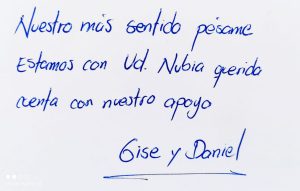 Nuestro más sentido pésame
Estamos con Ud. Nubia querida
cuenta con nuestro apoyo
Gise y Daniel